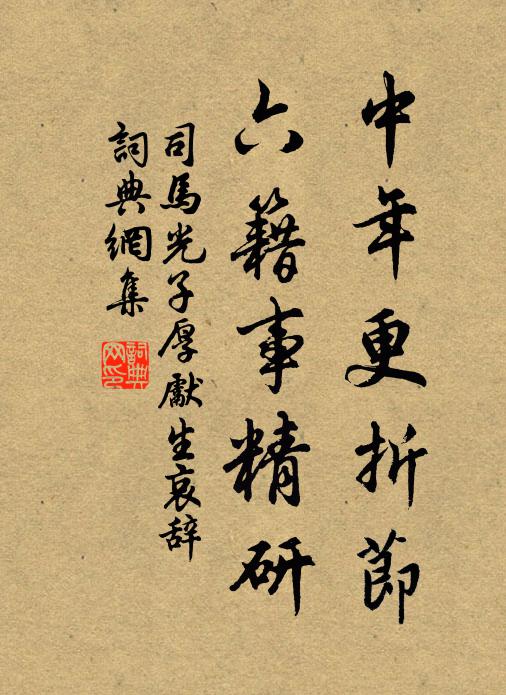 中年更折節
六籍事精研
司馬光子厚獻生哀辞
詞典網集
詞典網印